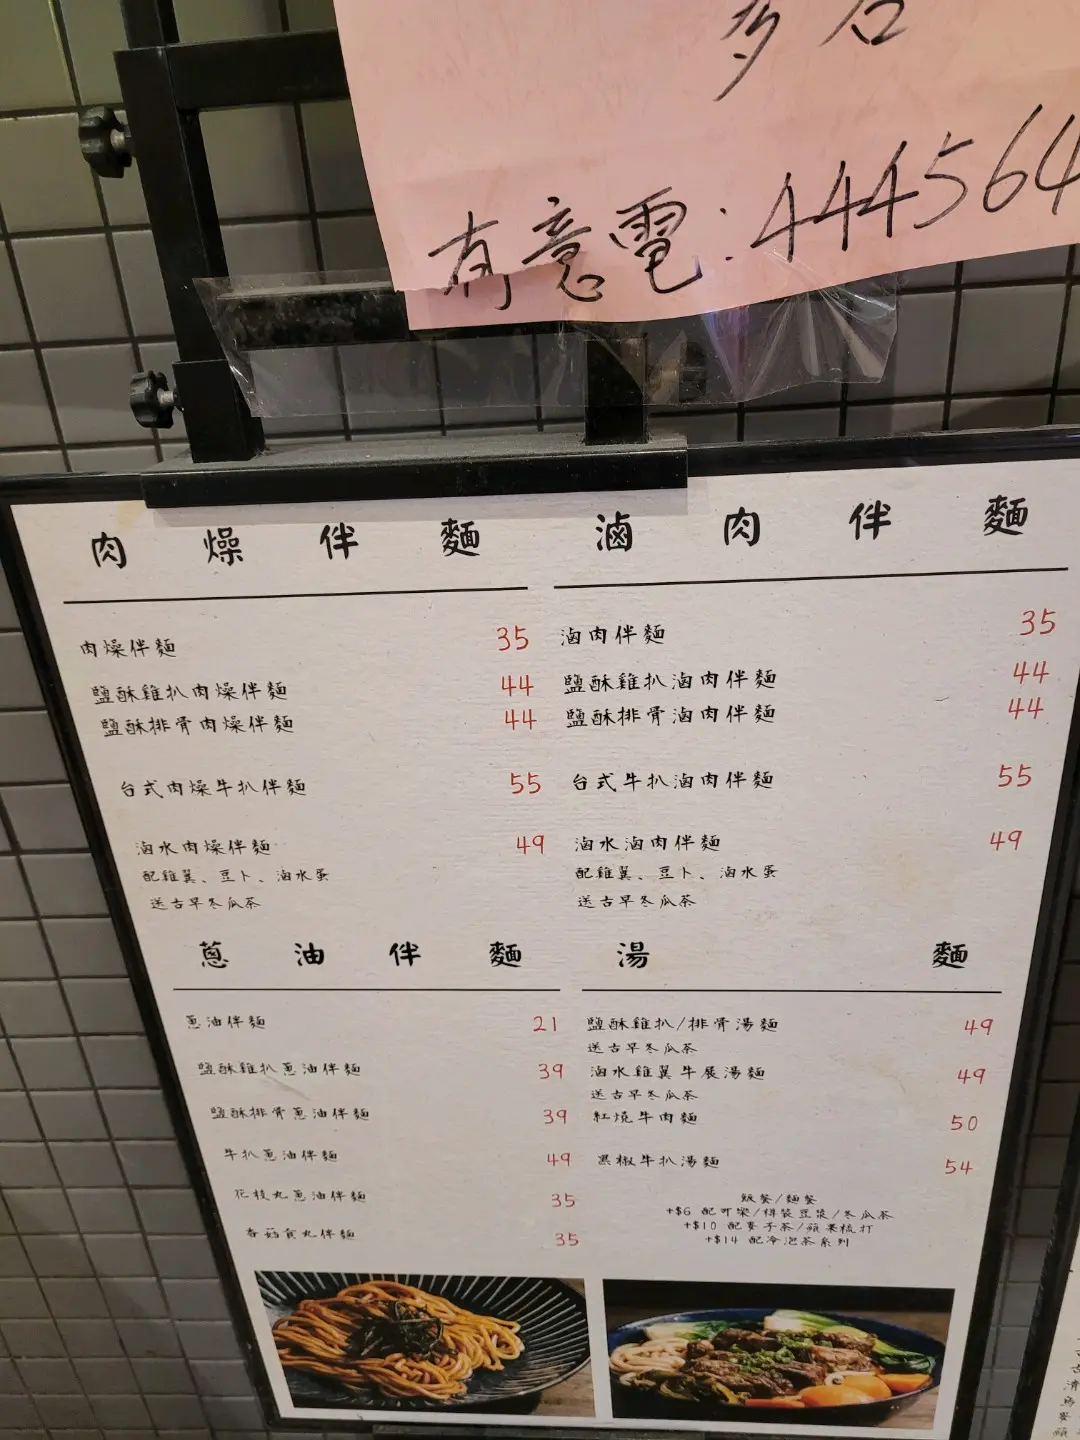 多名
有意電:444564
肉燥伴麵
肉燥伴麵 35
鹽酥雞扒肉燥伴麵 44
鹽酥排骨肉燥伴麵 44
台式肉燥牛扒伴麵 55
滷水肉燥伴麵 49
配雞翼、豆卜、滷水蛋
送古早冬瓜茶
滷肉伴麵
滷肉伴麵 35
鹽酥雞扒滷肉伴麵 44
鹽酥排骨滷肉伴麵 44
台式牛扒滷肉伴麵 55
滷水滷肉伴麵 49
配雞翼、豆卜、滷水蛋
送古早冬瓜茶
蔥油伴麵
蔥油伴麵 21
鹽酥雞扒蔥油伴麵 39
鹽酥排骨蔥油伴麵 39
牛扒蔥油伴麵 49
花枝丸蔥油伴麵 35
香菇貢丸伴麵 35
湯麵
鹽酥雞扒/排骨湯麵 49
送古早冬瓜茶
滷水雞翼牛展湯麵 49
送古早冬瓜茶
紅燒牛肉麵 50
黑椒牛扒湯麵 54
飯餐/麵餐
+$6 配可樂/樽裝豆漿/冬瓜茶
+$10 配麥子茶/蘋果梳打
+$14 配冷泡茶系列